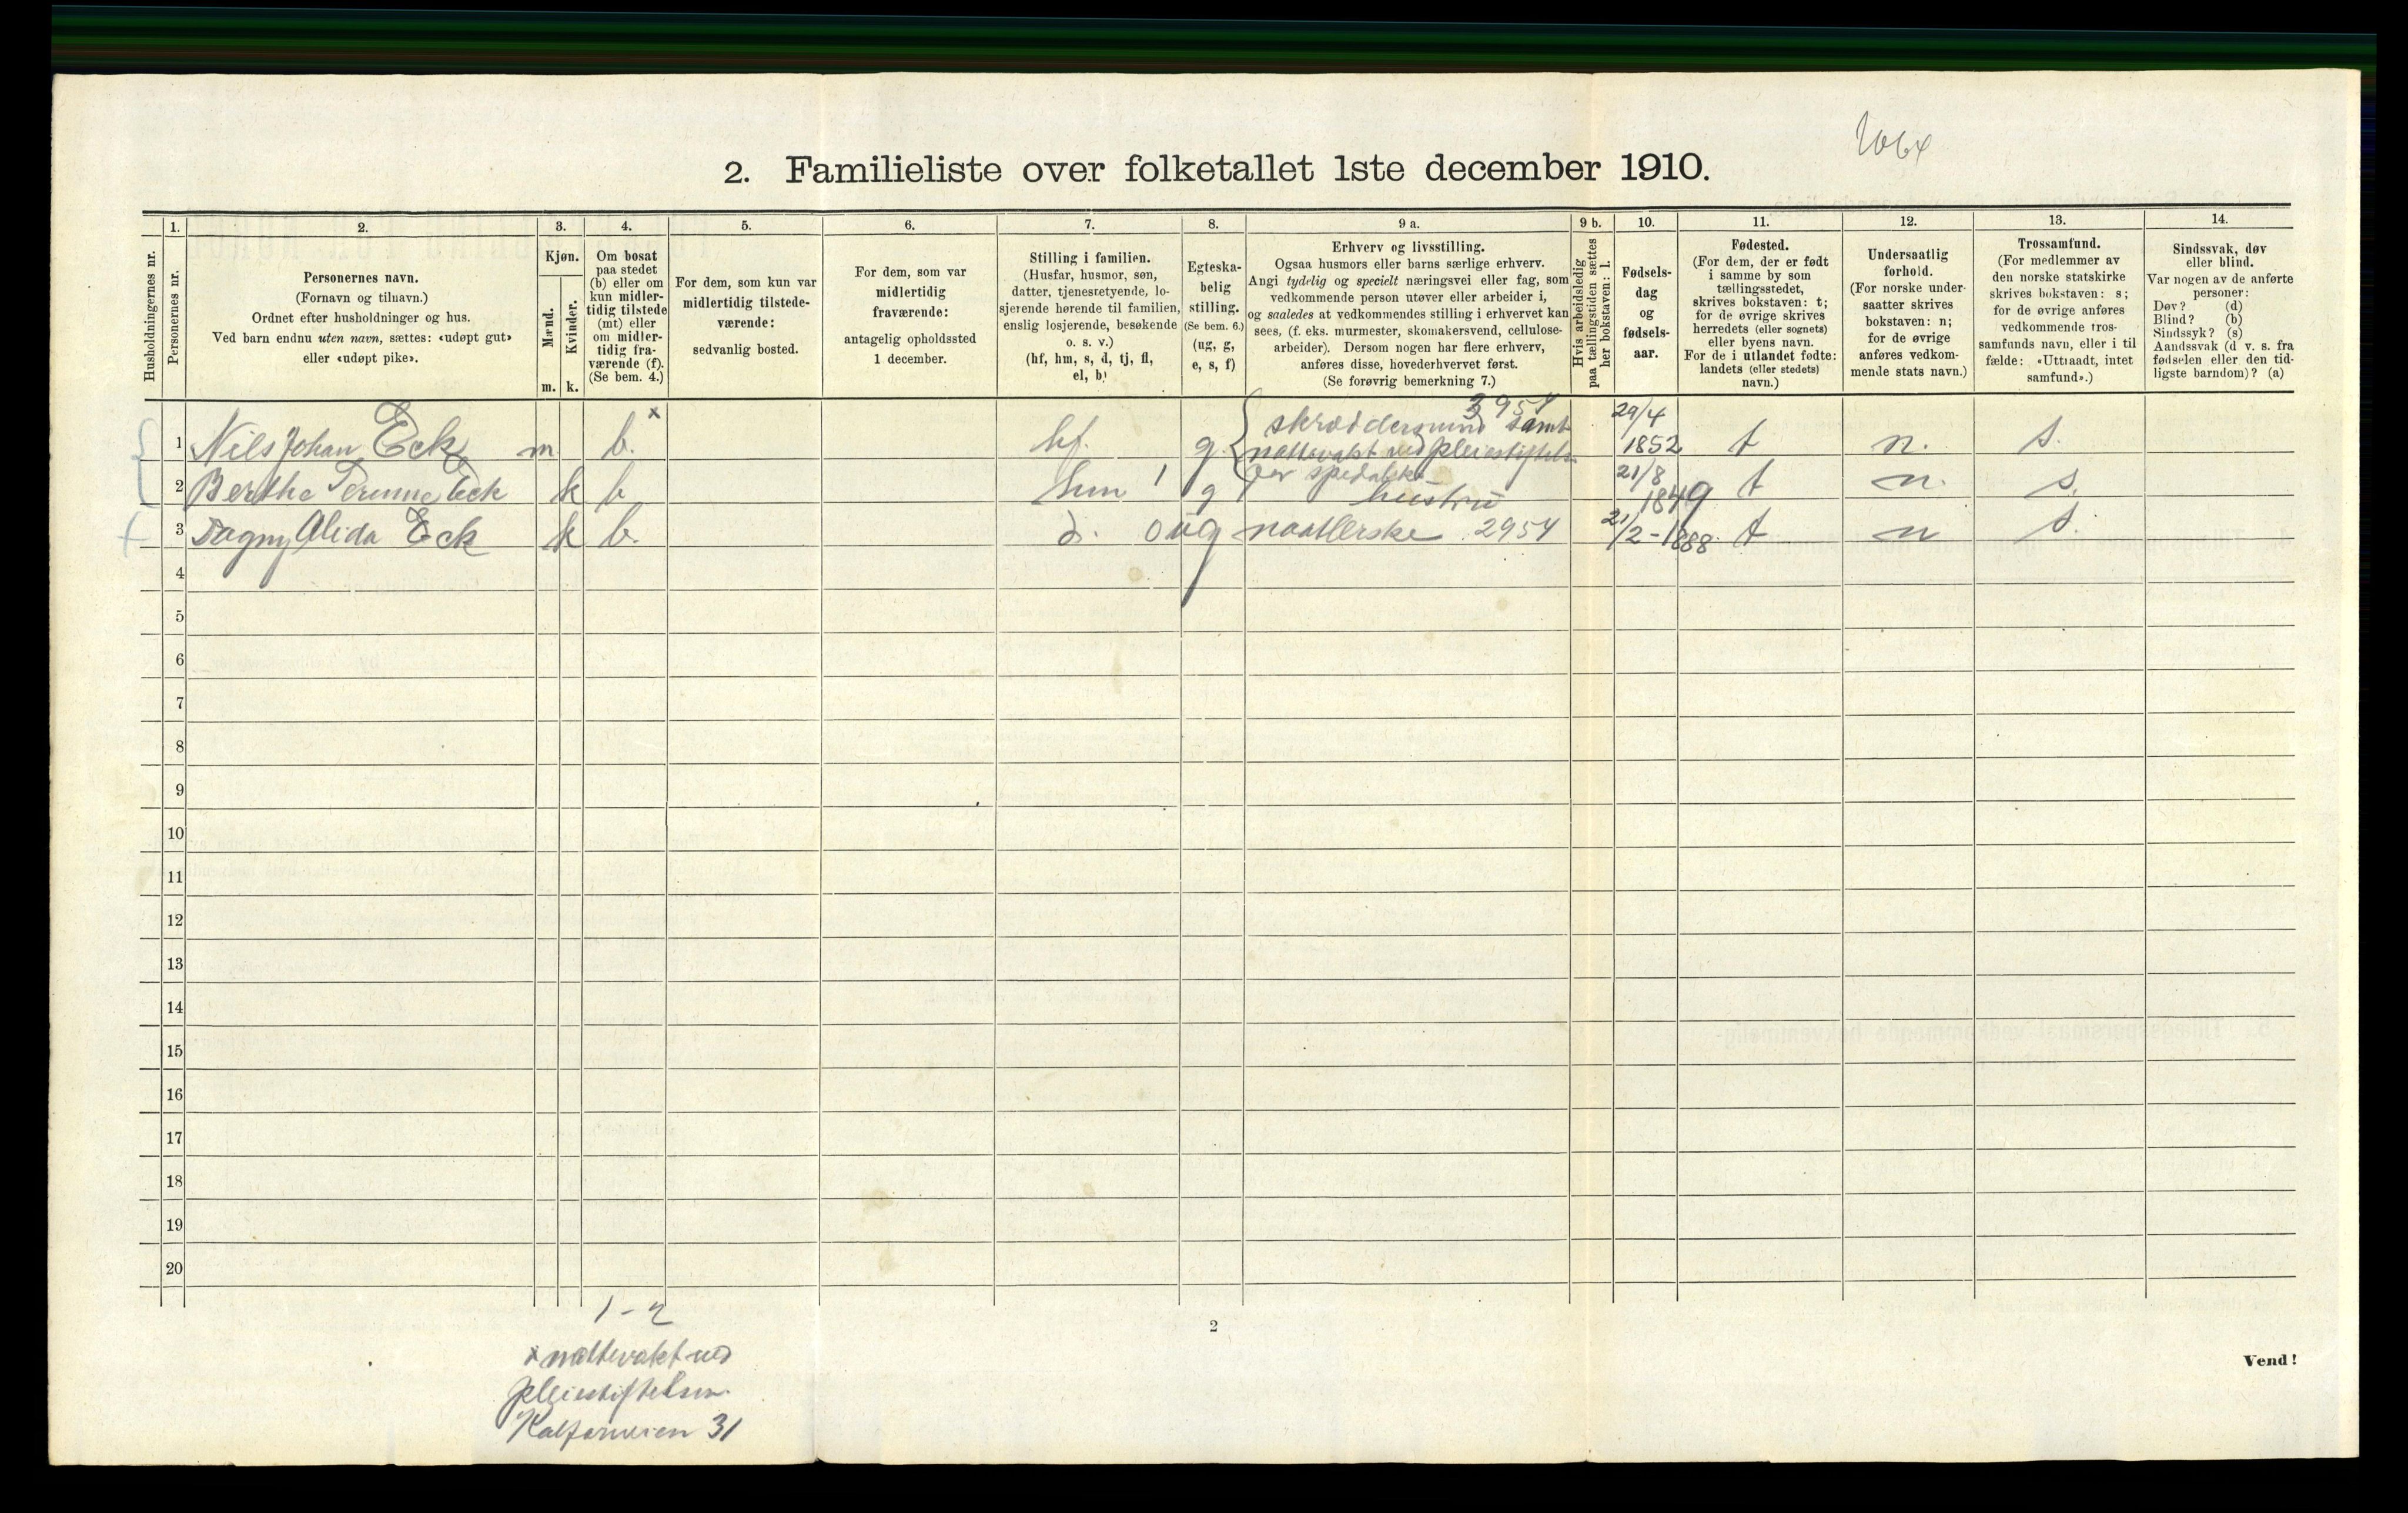 2. Familieliste over folketallet 1ste december 1910.
Husholdningernes nr.
1.
Personernes nr.
2.
Personernes navn.
(Fornavn og tilnavn.)
Ordnet efter husholdninger og hus.
Ved barn endnu uten navn, sættes: «udøpt gut»
eller «udøpt pike».
3.
Kjøn.
Mænd.
Kvinder.
m.
k.
4.
Om bosat
paa stedet
(b) eller om
kun midler-
tidig tilstede
(mt) eller
om midler-
tidig fra-
værende (f).
(Se bem. 4.)
5.
For dem, som kun var
midlertidig tilstede-
værende:
sedvanlig bosted.
6.
For dem, som var
midlertidig
fraværende:
antagelig opholdssted
1 december.
7.
Stilling i familien.
(Husfar, husmor, søn,
datter, tjenestetyende, lo-
sjerende hørende til familien,
enslig losjerende, besøkende
o. s. v.)
(hf, hm, s, d, tj, fl,
el, b)
8.
Egteska-
belig
stilling.
(Se bem. 6.)
(ug, g,
e, s, f)
9 a.
Erhverv og livsstilling.
Ogsaa husmors eller barns særlige erhverv.
Angi tydelig og specielt næringsvei eller fag, som
vedkommende person utøver eller arbeider i,
og saaledes at vedkommendes stilling i erhvervet kan
sees, (f. eks. murmester, skomakersvend, cellulose-
arbeider). Dersom nogen har flere erhverv,
anføres disse, hovederhvervet først.
(Se forøvrig bemerkning 7.)
9 b.
Hvis arbeidsledig
paa tællingstiden sættes
her bokstaven: l.
10.
Fødsels-
dag
og
fødsels-
aar.
11.
Fødested.
(For dem, der er født
i samme by som
tællingsstedet,
skrives bokstaven: t;
for de øvrige skrives
herredets (eller sognets)
eller byens navn.
For de i utlandet fødte:
landets (eller stedets)
navn.)
12.
Undersaatlig
forhold.
(For norske under-
saatter skrives
bokstaven: n;
for de øvrige
anføres vedkom-
mende stats navn.)
13.
Trossamfund.
(For medlemmer av
den norske statskirke
skrives bokstaven: s;
for de øvrige anføres
vedkommende tros-
samfunds navn, eller i til
fælde: «Uttraadt, intet
samfund».)
14.
Sindssvak, døv
eller blind.
Var nogen av de anførte
personer:
Døv? (d)
Blind? (b)
Sindssyk? (s)
Aandssvak (d. v. s. fra
fødselen eller den tid-
ligste barndom)? (a)
3954
1 Nils Johan Eck m b. x hf. g skræddersvend samt 29/4 1852 t n. s.
nattevakt ved pleiestiftelsen
for spedalske
2 Berthe Eck k b hm 1 g hustru 21/8 1849 t n. s.
3 Dagny Alida Eck k b. d. 0 ug naatlerske 2954 21/2-1888. t n s.
4
5
6
7
8
9
10
11
12
13
14
15
16
17
18
19
20
1-2
2
x nattevakt ved
pleiestiftelsen
Kalfarveien 31
Vend!